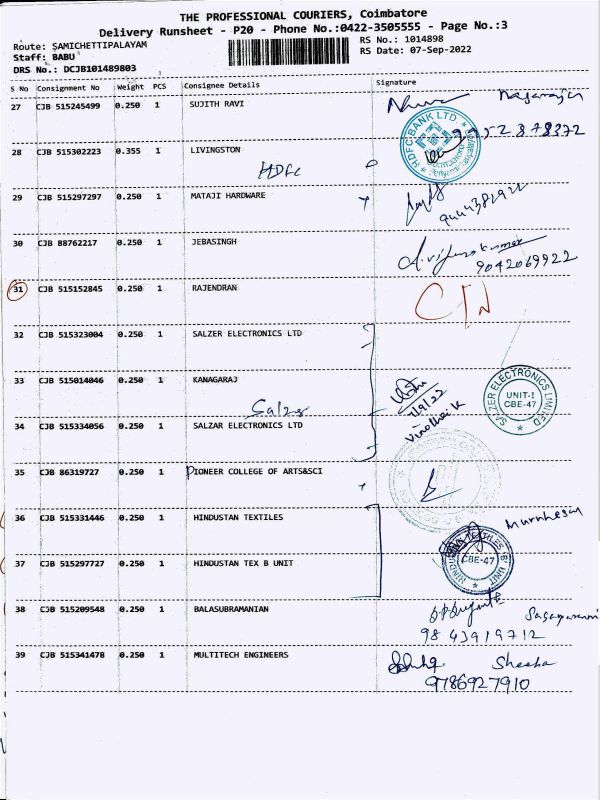 THE PROFESSIONAL COURIERS, Coimbatore
Delivery Runsheet - P20 - Phone No.:0422-3505555 - Page No.:3
Route: SAMICHETTIPALAYAM RS No.: 1014898
Staff: BABU RS Date: 07-Sep-2022
DRS No.: DCJB101489803
S No Consignment No Weight PCS Consignee Details Signature
27 CJB 515245499 0.250 1 SUJITH RAVI Nagarajan
HDFC BANK LTD
28 CJB 515302223 0.355 1 LIVINGSTON
HDFC
29 CJB 515297297 0.250 1 MATAJI HARDWARE
30 CJB 88762217 0.250 1 JEBASINGH
9042069922
31 CJB 515152845 0.250 1 RAJENDRAN
32 CJB 515323004 0.250 1 SALZER ELECTRONICS LTD
33 CJB 515014046 0.250 1 KANAGARAJ
Salzer
SALZER ELECTRONICS LIMITED
UNIT-I
CBE-47
34 CJB 515334056 0.250 1 SALZAR ELECTRONICS LTD
35 CJB 86319727 0.250 1 PIONEER COLLEGE OF ARTS&SCI
36 CJB 515331446 0.250 1 HINDUSTAN TEXTILES
37 CJB 515297727 0.250 1 HINDUSTAN TEX B UNIT
CBE-47
38 CJB 515209548 0.250 1 BALASUBRAMANIAN
9843919712
39 CJB 515341478 0.250 1 MULTITECH ENGINEERS
9786927910